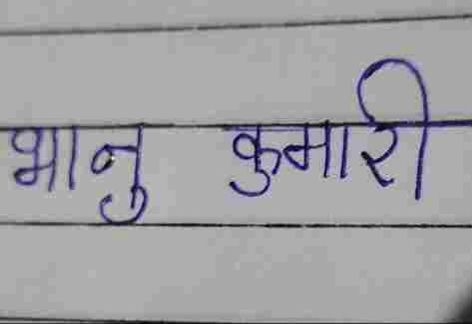 भानु कुमारी